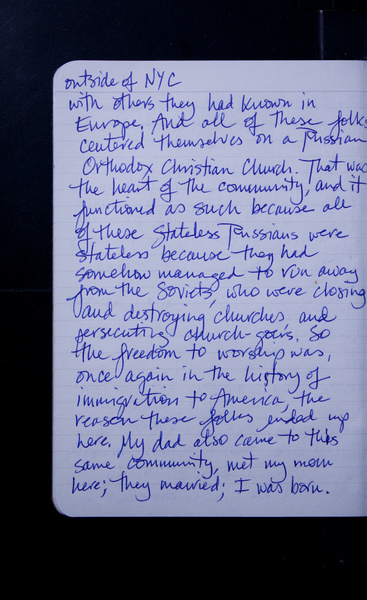 outside of NYC
with others they had known in
Europe. And all of these folks
centered themselves on a Russian
Orthodox Christian Church. That was
the heart of the community, and it
functioned as such because all
of these stateless Russians were
stateless because they had
somehow managed to run away
from the Soviets, who were closing
and destroying churches and
persecuting church-goers. So
the freedom to worship was,
once again in the history of
immigration to America, the
reason these folks ended up
here. My dad also came to this
same community, met my mom
here; they married; I was born.